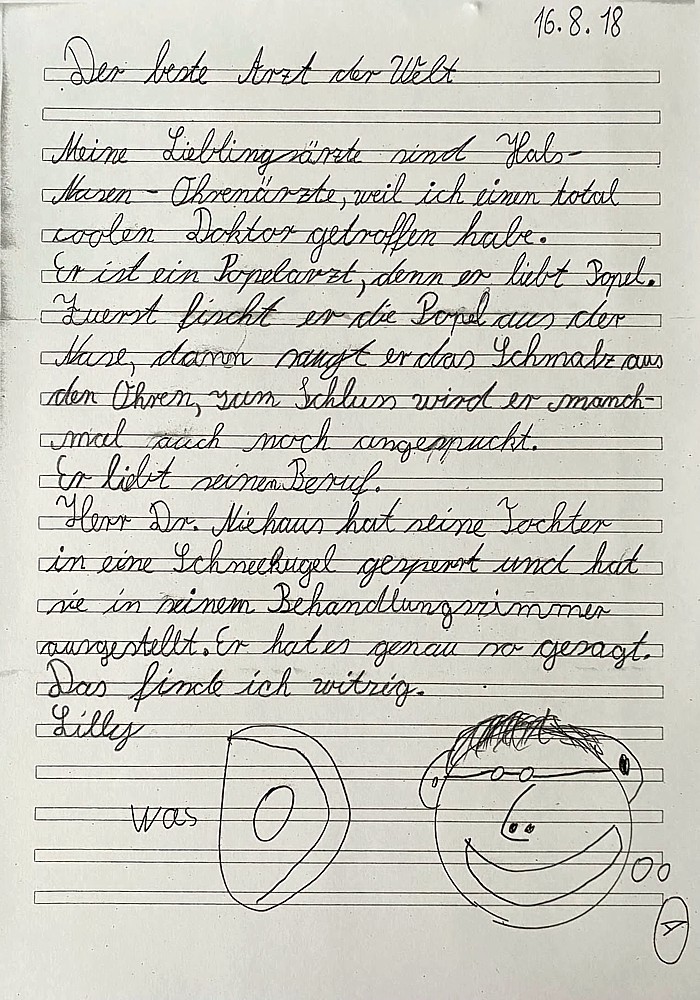 16.8.18
Der beste Arzt der Welt
Meine Lieblingsärzte sind Hals-
Nasen-Ohrenärzte, weil ich einen total
coolen Doktor getroffen habe.
Er ist ein Popelarzt, denn er liebt Popel.
Zuerst fischt er die Popel aus der
Nase, dann saugt er das Schmalz aus
den Ohren, zum Schluss wird er manch-
mal auch noch angespuckt.
Er liebt seinen Beruf.
Herr Dr. Niehaus hat seine Tochter
in eine Schneekugel gesperrt und hat
sie in seinem Behandlungszimmer
ausgestellt. Er hat es genau so gesagt.
Das finde ich witzig.
Lilly
was